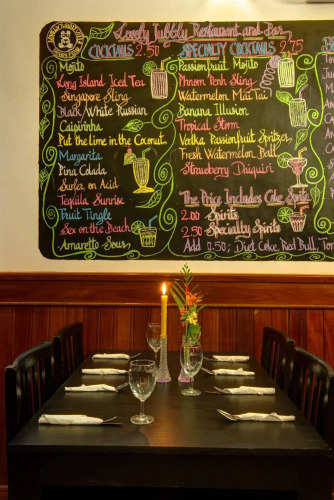 Lovely Jubbly Restaurant and Bar
COCKTAILS 2.50
Mojito
Long Island Iced Tea
Singapore Sling
Black/White Russian
Caipirinha
Put the lime in the Coconut
Margarita
Pina Colada
Surfer on Acid
Tequila Sunrise
Fruit Tingle
Sex on the Beach
Amaretto Sour
SPECIALTY COCKTAILS 2.75
Passionfruit Mojito
Phnom Penh Sling
Watermelon Mai Tai
Banana Illusion
Tropical Storm
Vodka Passionfruit Spritzer
Fresh Watermelon Ball
Strawberry Daiquiri
The Price Includes Coke, Sprite
2.00 Spirits
2.50 Specialty Spirits
Add 0.50: Diet Coke, Red Bull, To